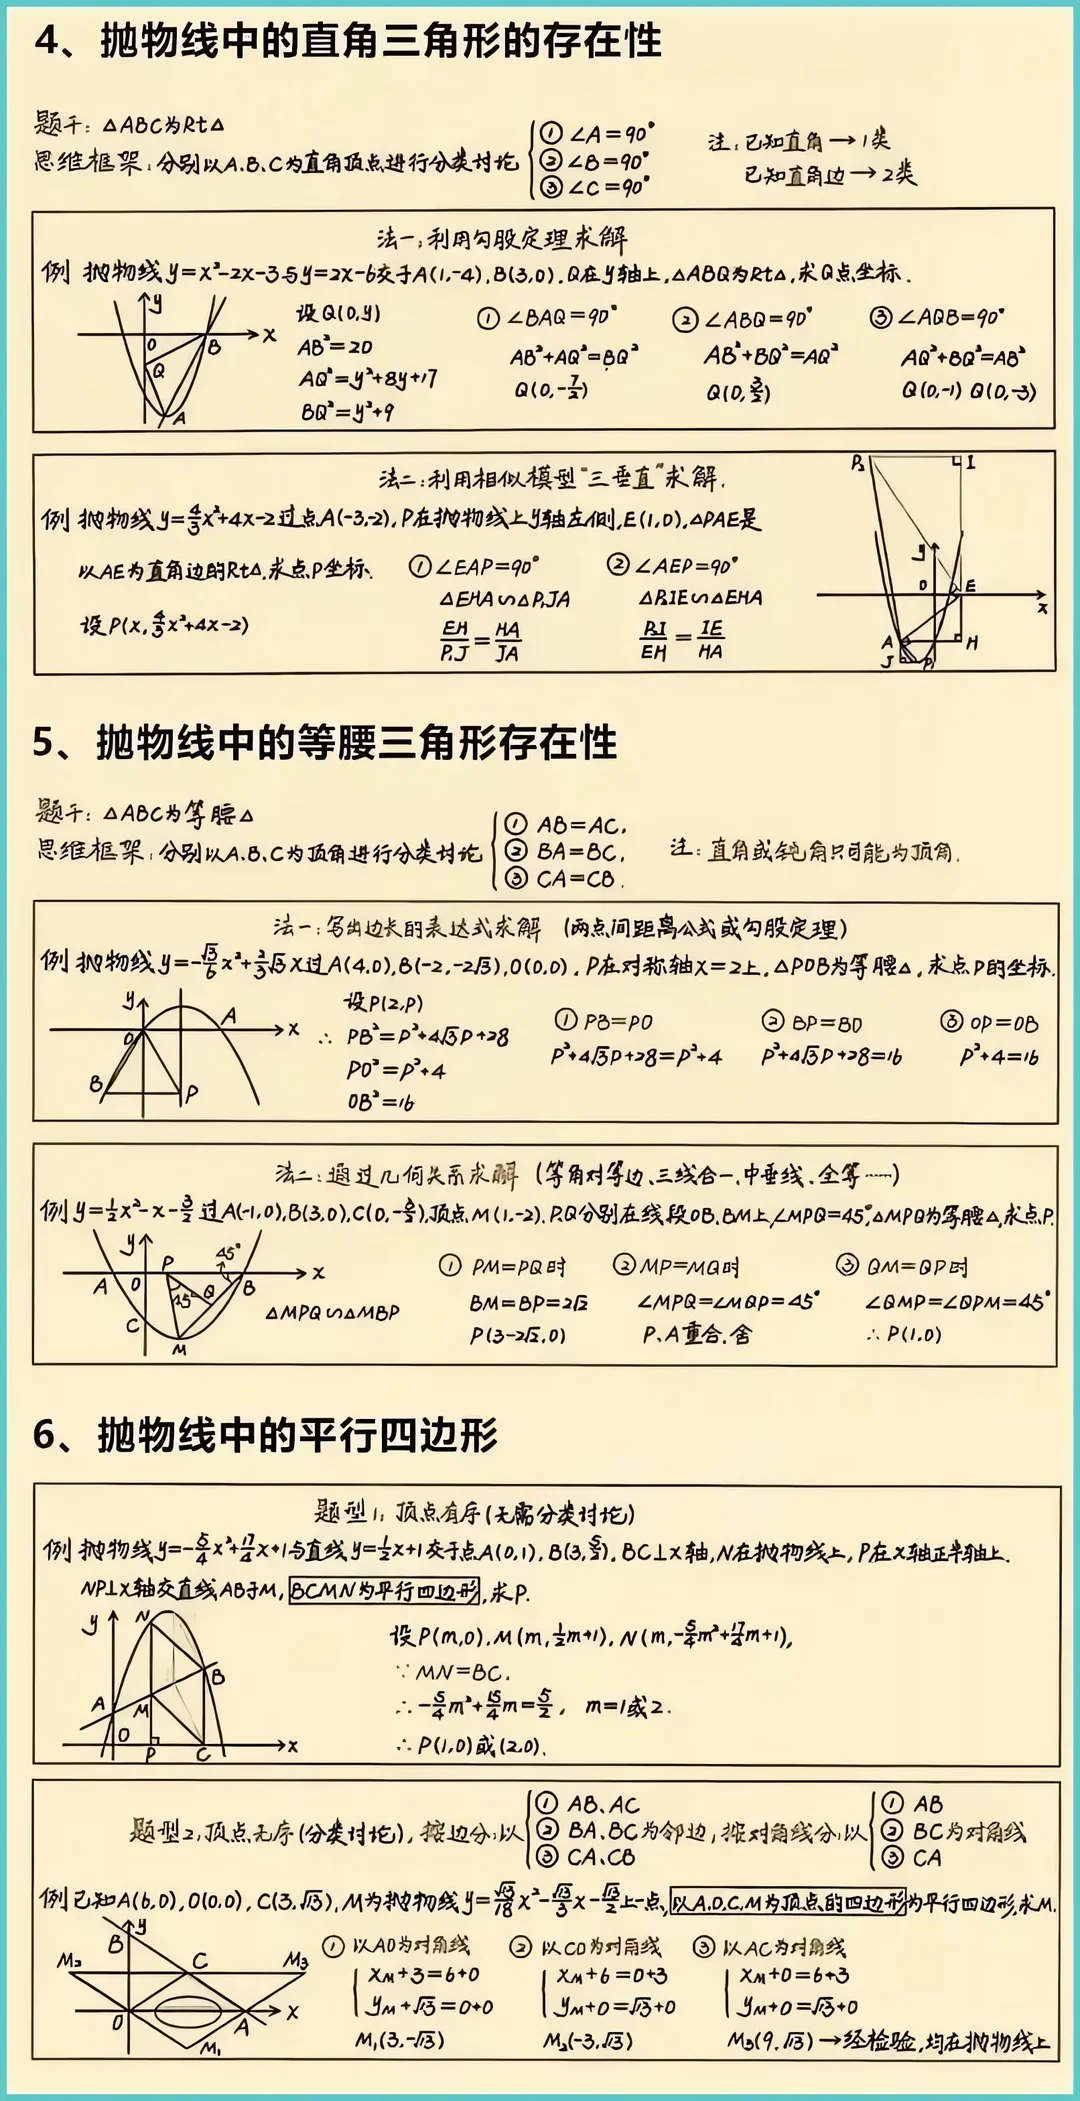 4、抛物线中的直角三角形的存在性
题干：△ABC为Rt△
思维框架：分别以A、B、C为直角顶点进行分类讨论
① ∠A=90°
② ∠B=90°
③ ∠C=90°
注：已知直角→1类
已知直角边→2类
法一：利用勾股定理求解
例 抛物线y=x²-2x-3与y=2x-6交于A(1,-4),B(3,0).Q在y轴上,△ABQ为Rt△,求Q点坐标.
y
O
B
x
Q
A
设Q(0,y)
AB²=20
AQ²=y²+8y+17
BQ²=y²+9
① ∠BAQ=90°
AB²+AQ²=BQ²
Q(0,-7/2)
② ∠ABQ=90°
AB²+BQ²=AQ²
Q(0,3/2)
③ ∠AQB=90°
AQ²+BQ²=AB²
Q(0,-1) Q(0,-3)
法二：利用相似模型“三垂直”求解.
例 抛物线y=4/3x²+4x-2过点A(-3,-2),P在抛物线上y轴左侧,E(1,0),△PAE是
以AE为直角边的Rt△.求点P坐标.
设P(x,4/3x²+4x-2)
① ∠EAP=90°
△EHA∽△P₁JA
EH/P₁J=HA/JA
② ∠AEP=90°
△P₂IE∽△EHA
P₂I/EH=IE/HA
P₂
I
y
O
E
x
A
H
J
P₁
5、抛物线中的等腰三角形存在性
题干：△ABC为等腰△
思维框架：分别以A、B、C为顶角进行分类讨论
① AB=AC.
② BA=BC.
③ CA=CB.
注：直角或钝角只可能为顶角.
法一：写出边长的表达式求解 (两点间距离公式或勾股定理)
例 抛物线y=-√3/6x²+2/3√3x过A(4,0),B(-2,-2√3),O(0,0).P在对称轴x=2上,△POB为等腰△,求点P的坐标.
y
O
A
x
B
P
设P(2,P)
∴ PB²=P²+4√3P+28
PO²=P²+4
OB²=16
① PB=PO
P²+4√3P+28=P²+4
② BP=BO
P²+4√3P+28=16
③ OP=OB
P²+4=16
法二：通过几何关系求解 (等角对等边、三线合一、中垂线、全等……)
例 y=1/2x²-x-3/2过A(-1,0),B(3,0),C(0,-3/2),顶点M(1,-2).P,Q分别在线段OB、BM上,∠MPQ=45°,△MPQ为等腰△,求点P.
y
P
45°
A
O
B
x
45°
Q
C
M
△MPQ∽△MBP
① PM=PQ时
BM=BP=2√2
P(3-2√2,0)
② MP=MQ时
∠MPQ=∠MQP=45°
P、A重合.舍
③ QM=QP时
∠QMP=∠QPM=45°
∴ P(1,0)
6、抛物线中的平行四边形
题型1：顶点有序(无需分类讨论)
例 抛物线y=-5/4x²+17/4x+1与直线y=1/2x+1交于点A(0,1),B(3,5/2).BC⊥x轴,N在抛物线上,P在x轴正半轴上.
NP⊥x轴交直线AB于M,BCMN为平行四边形,求P.
y
N
B
A
M
O
P
C
x
设P(m,0),M(m,1/2m+1),N(m,-5/4m²+17/4m+1),
∵ MN=BC.
∴ -5/4m²+15/4m=5/2, m=1或2.
∴ P(1,0)或(2,0).
题型2：顶点无序(分类讨论),按边分：以
① AB、AC
② BA、BC为邻边；
③ CA、CB
按对角线分：以
① AB
② BC为对角线
③ CA
例 已知A(6,0),O(0,0),C(3,√3),M为抛物线y=√3/18x²-√3/3x-√3/2上一点,以A.O.C.M为顶点的四边形为平行四边形,求M.
y
B
M₂
C
M₃
O
A
x
M₁
① 以AO为对角线
xM+3=6+0
yM+√3=0+0
M₁(3,-√3)
② 以CO为对角线
xM+6=0+3
yM+0=√3+0
M₂(-3,√3)
③ 以AC为对角线
xM+0=6+3
yM+0=√3+0
M₃(9,√3)→经检验,均在抛物线上